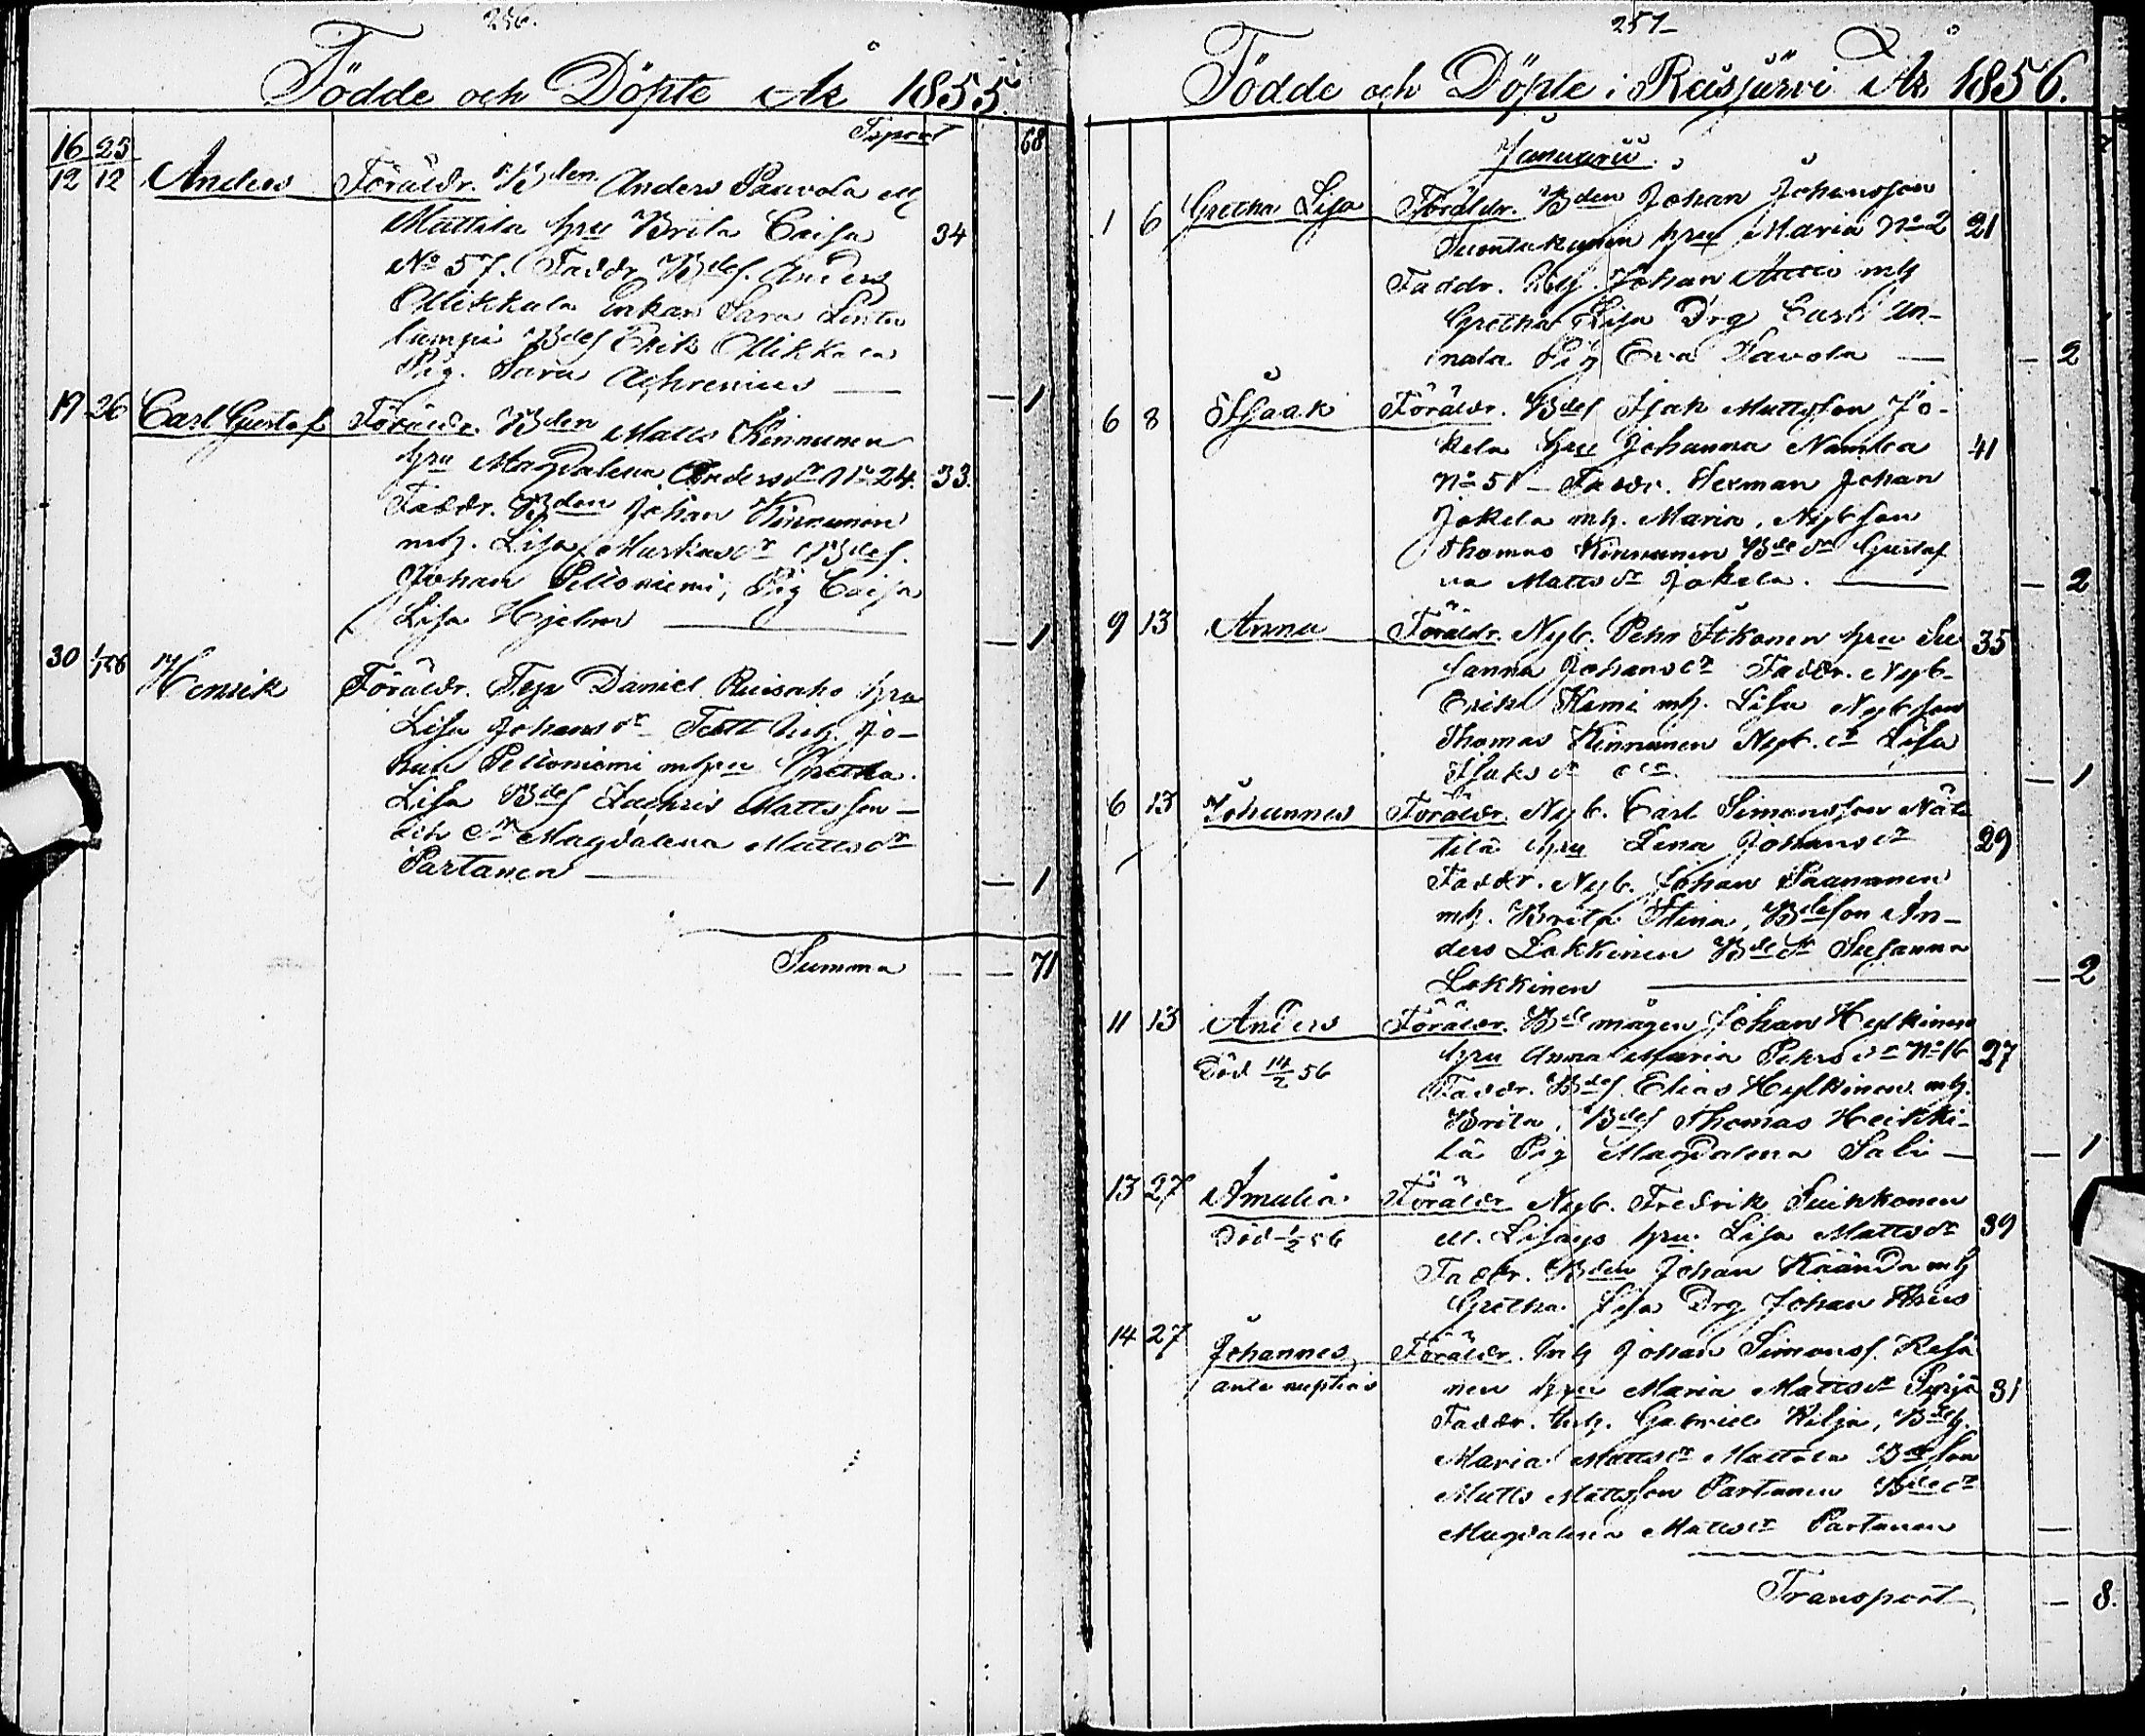 256.
Födde och Döpte År 1855.
Tsport 68
16 25
12 12 Anders Föräldr. Bden Anders Paavola
Mattila hru Brita Caisa 34
No 57. Faddr. Bdes. Anders
Ollikkala Enkan Sara
lampi Bdes Erik Ollikkala
Pig. Sara — 1
19 26 Carl Gustaf Föräldr. Bden Matts Kinnunen
hru Magdalena Andersdr No 24. 33.
Faddr. Bden Johan Kinnunen
mh. Lisa Bdes.
Johan Pelloniemi, Pig Caisa
Lisa Hjelm — 1
30 1/1 56 Henrik Föräldr. Daniel Ruisaho hru
Lisa Johansdr Inh. Jo-
Pelloniemi mhru Gretha
Lisa Bdes Zachris Mattsson
och Magdalena Mattsdr
Partanen — 1
Summa — — 71
257
Födde och Döpte i Reisjärvi År 1856.
Januarii
1 6 Gretha Lisa Föräldr. Bden Johan Johansson
hru Maria No 2 21
Faddr. Johan mh
Gretha Lisa Drg Carl An-
nala Pig Eva Savola — 2
6 8 Isaak Föräldr. Bdes Isak Mattsson Jo-
kela hru Johanna 41
No 51 — Faddr. Herman Johan
Jokela mh. Maria, Nybson
Thomas Kinnunen Bdedr Gustaf
va Mattsdr Jokela. — 2
9 13 Anna Föräldr. Nyb. Pehr Itkonen hru Su 35
sanna Johansdr Faddr. Nyb.
Erik Kemi mh. Lisa Nybson
Thomas Kinnunen Nyb. dr Lisa
Isaksdr — 1
6 13 Johannes Föräldr. Nyb. Carl Simonsson
tilä hru Lena Johansdr 29
Faddr. Nyb. Johan Paananen
mh. Brita Stina, Bdeson An-
ders Lokkinen Bdedr Susanna
Lokkinen — 2
11 13 Anders Föräldr. Bdemågen Johan Hylkinen
Död 14/2 56 hru Anna Maria Pehrsdr No 16 27
Faddr. Bdes Elias Hylkinen mh.
Brita, Bdes Thomas Heikki-
lä Pig Magdalena Sali — 1
13 27 Amalia Föräldr. Nyb. Fredrik Suikkonen
Död 1/2 56 hru Lisa Mattsdr 39
Faddr. Bden Johan Kääntä mh
Gretha Lisa Drg Johan
14 27 Johannes Föräldr. Inh Johan Simons.
ante nuptias nen hru Maria Mattsdr 31
Faddr. Inh. Gabriel Kilja, Bdeh.
Maria Mattsdr Mattila Bdeson
Matts Mattsson Partanen Bdedr
Magdalena Mattsdr Partanen —
Transport — 8.